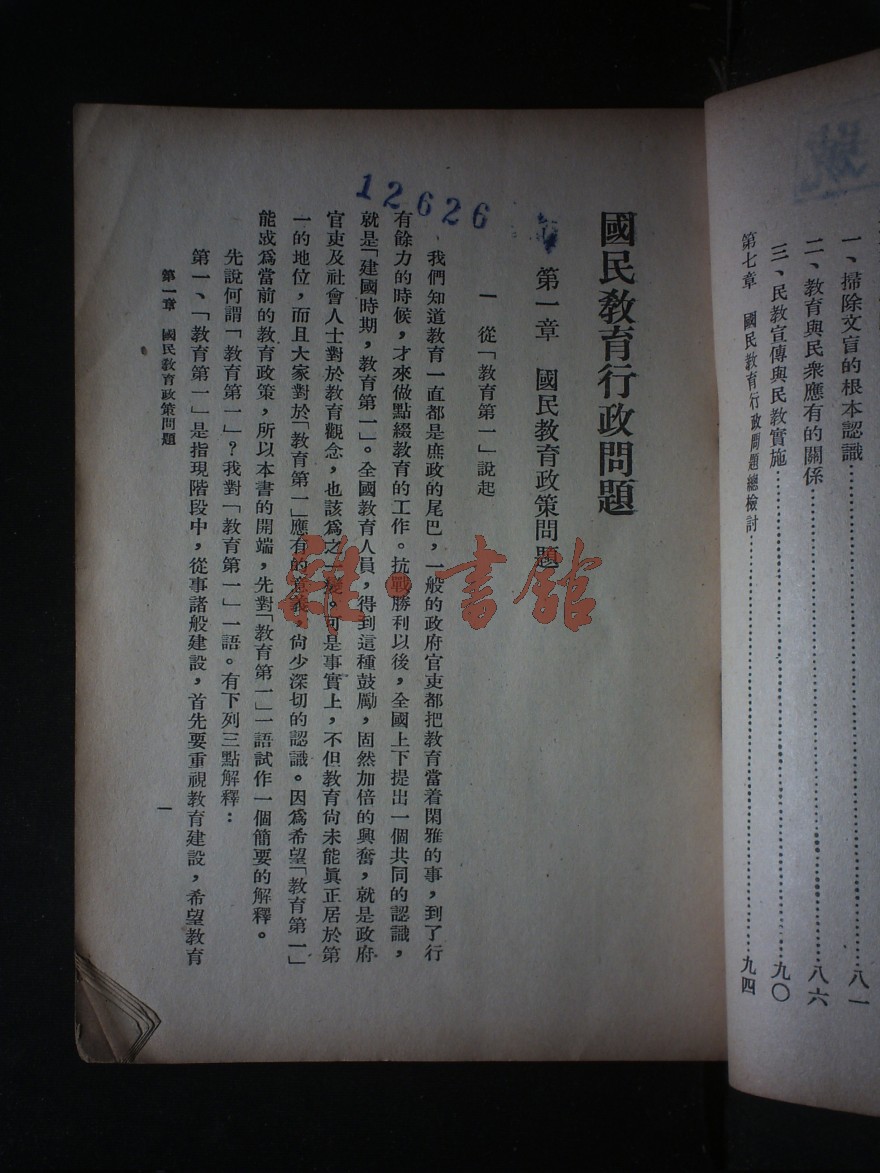 一、掃除文盲的根本認識…………八一
二、教育與民衆應有的關係…………八六
三、民教宣傳與民教實施…………九〇
第七章　國民教育行政問題總檢討…………九四
國民教育行政問題
第一章　國民教育政策問題
一　從「教育第一」說起
我們知道教育一直都是庶政的尾巴，一般的政府官吏都把教育當着閑雅的事，到了行
有餘力的時候，才來做點綴教育的工作。抗戰勝利以後，全國上下提出一個共同的認識，
就是「建國時期，教育第一」。全國教育人員，得到這種鼓勵，固然加倍的興奮，就是政府
官吏及社會人士對於教育觀念，也該爲之一變。可是事實上，不但教育尙未能眞正居於第
一的地位，而且大家對於「教育第一」應有的意義，尙少深切的認識。因爲希望「教育第一」
能成爲當前的教育政策，所以本書的開端，先對「教育第一」一語試作一個簡要的解釋。
先說何謂「教育第一」？我對「教育第一」一語。有下列三點解釋：
第一、「教育第一」是指現階段中，從事諸般建設，首先要重視教育建設，希望教育
第一章　國民教育政策問題
一
12626
雜·書館